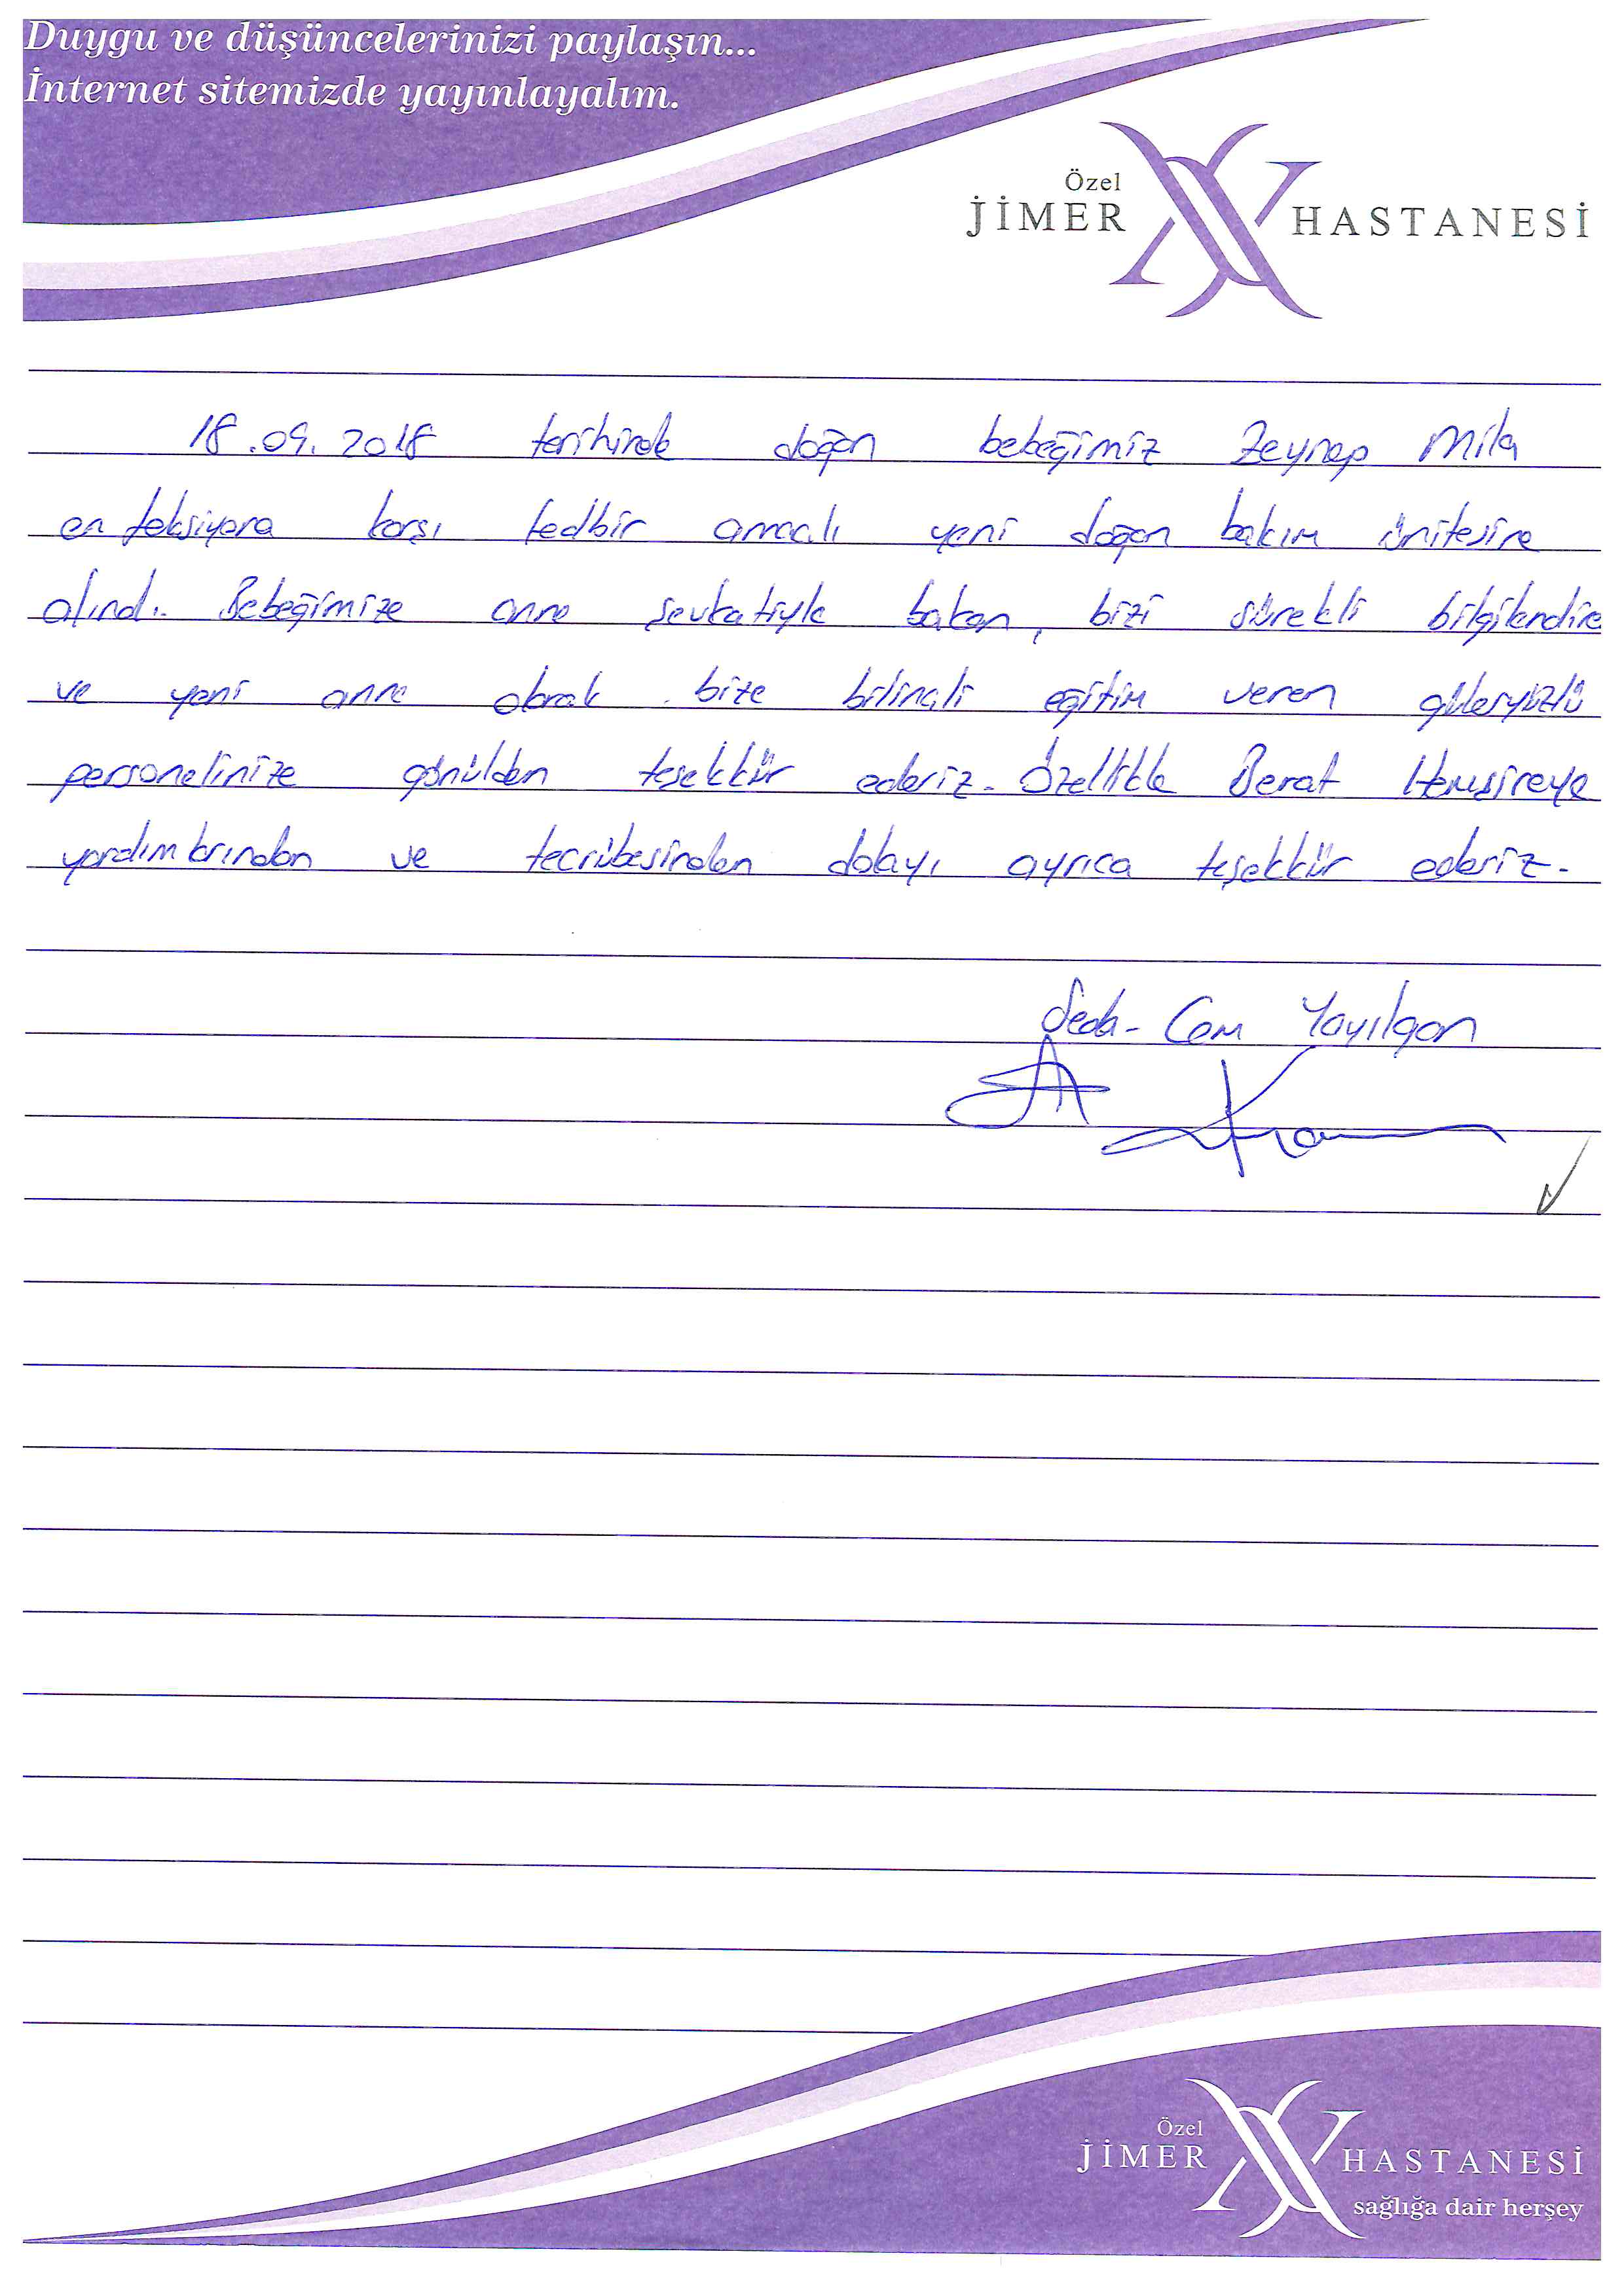 Duygu ve düşüncelerinizi paylaşın...
İnternet sitemizde yayınlayalım.
Özel
JİMER HASTANESİ
18.09.2018 tarihinde doğan bebeğimiz Zeynep Mila
enfeksiyona karşı tedbir amaçlı yeni doğan bakım ünitesine
alındı. Bebeğimize anne şevkatiyle bakan, bizi sürekli bilgilendire
ve yeni anne olarak bize bilinçli eğitim veren güleryüzlü
personelinize gönülden teşekkür ederiz. Özellikle Berat Hemşireye
yardımlarından ve tecrübesinden dolayı ayrıca teşekkür ederiz.
Seda - Cem Yayılgan
Özel
JİMER HASTANESİ
sağlığa dair herşey